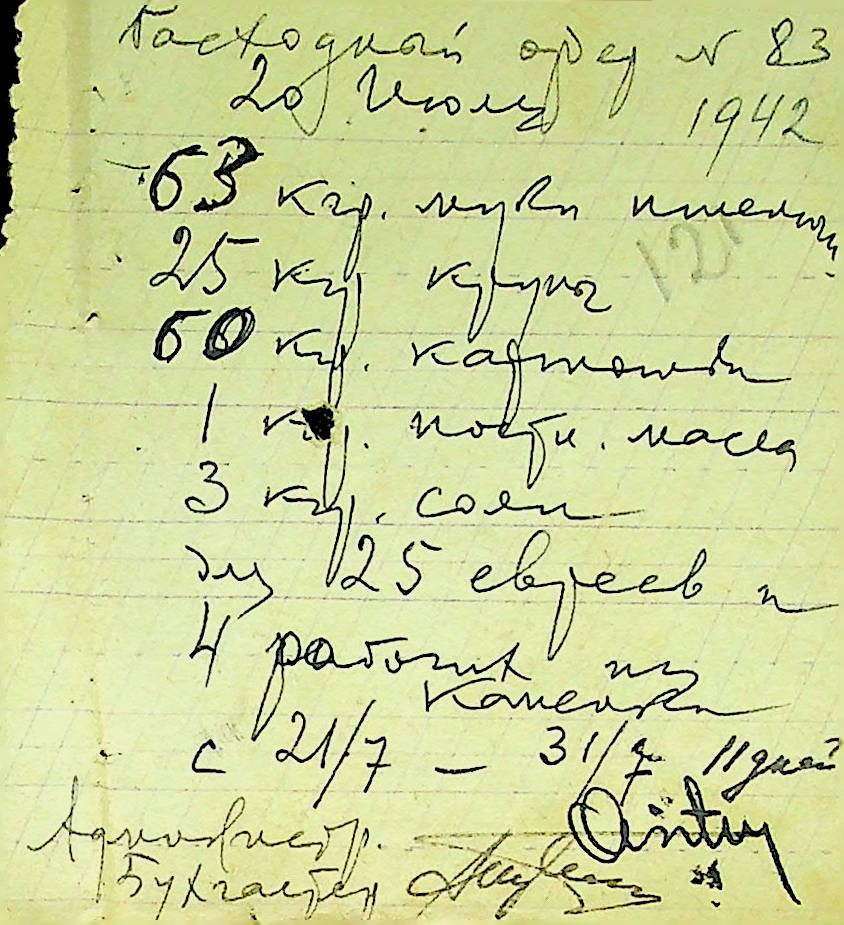 Расходный ордер N 83
20 Июля 1942
63 кгр. муки пшеничн.
121
25 кгр крупы
60 кгр. картошки
1 кгр. постн. масла
3 кгр. соли
для 25 евреев и
4 рабочих из
Каменки
с 21/7 – 31/7 11 дней
Администр.
Бухгалтер